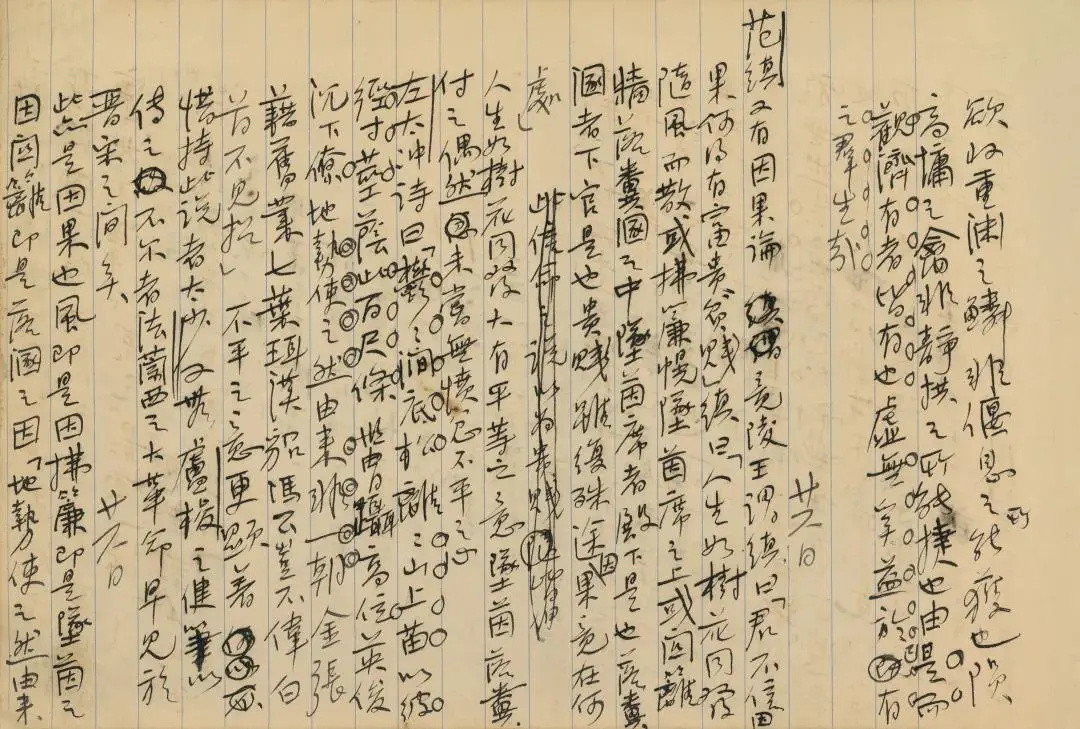 欲收重渊之鱗非偃息之所能獲也隕
高墉之禽非靜拱之所能捷也由是而
觀濟有者皆有也虛無奚益於有
之羣生哉
廿六日
范縝又有因果論 竟陵王謂縝曰「君不信因
果何得有富貴貧賤」縝曰「人生如樹花同發
隨風而散或拂簾幌墜茵席之上或因籬
牆落糞溷之中墜茵席者殿下是也落糞
溷者下官是也貴賤雖復殊途因果竟在何
處」
人生如樹花同發大有平等之意墜茵落糞
付之偶然未嘗無憤怨不平之心
左太冲诗曰「鬱鬱涧底松離離山上苗以彼
徑寸莖蔭此百尺條 世冑躡高位英俊
沉下僚地勢使之然由来非一朝金張
藉舊業七葉珥漢貂馮公豈不偉白
首不見招」 不平之意更顯著
惜持此说者太少又無盧梭之健筆以
傳之 不尔者法蘭西之大革命早見於
晋宋之间矣
廿六日
此点是因果也風即是因拂簾即是墜茵之
因因籬即是落溷之因「地勢使之然由来